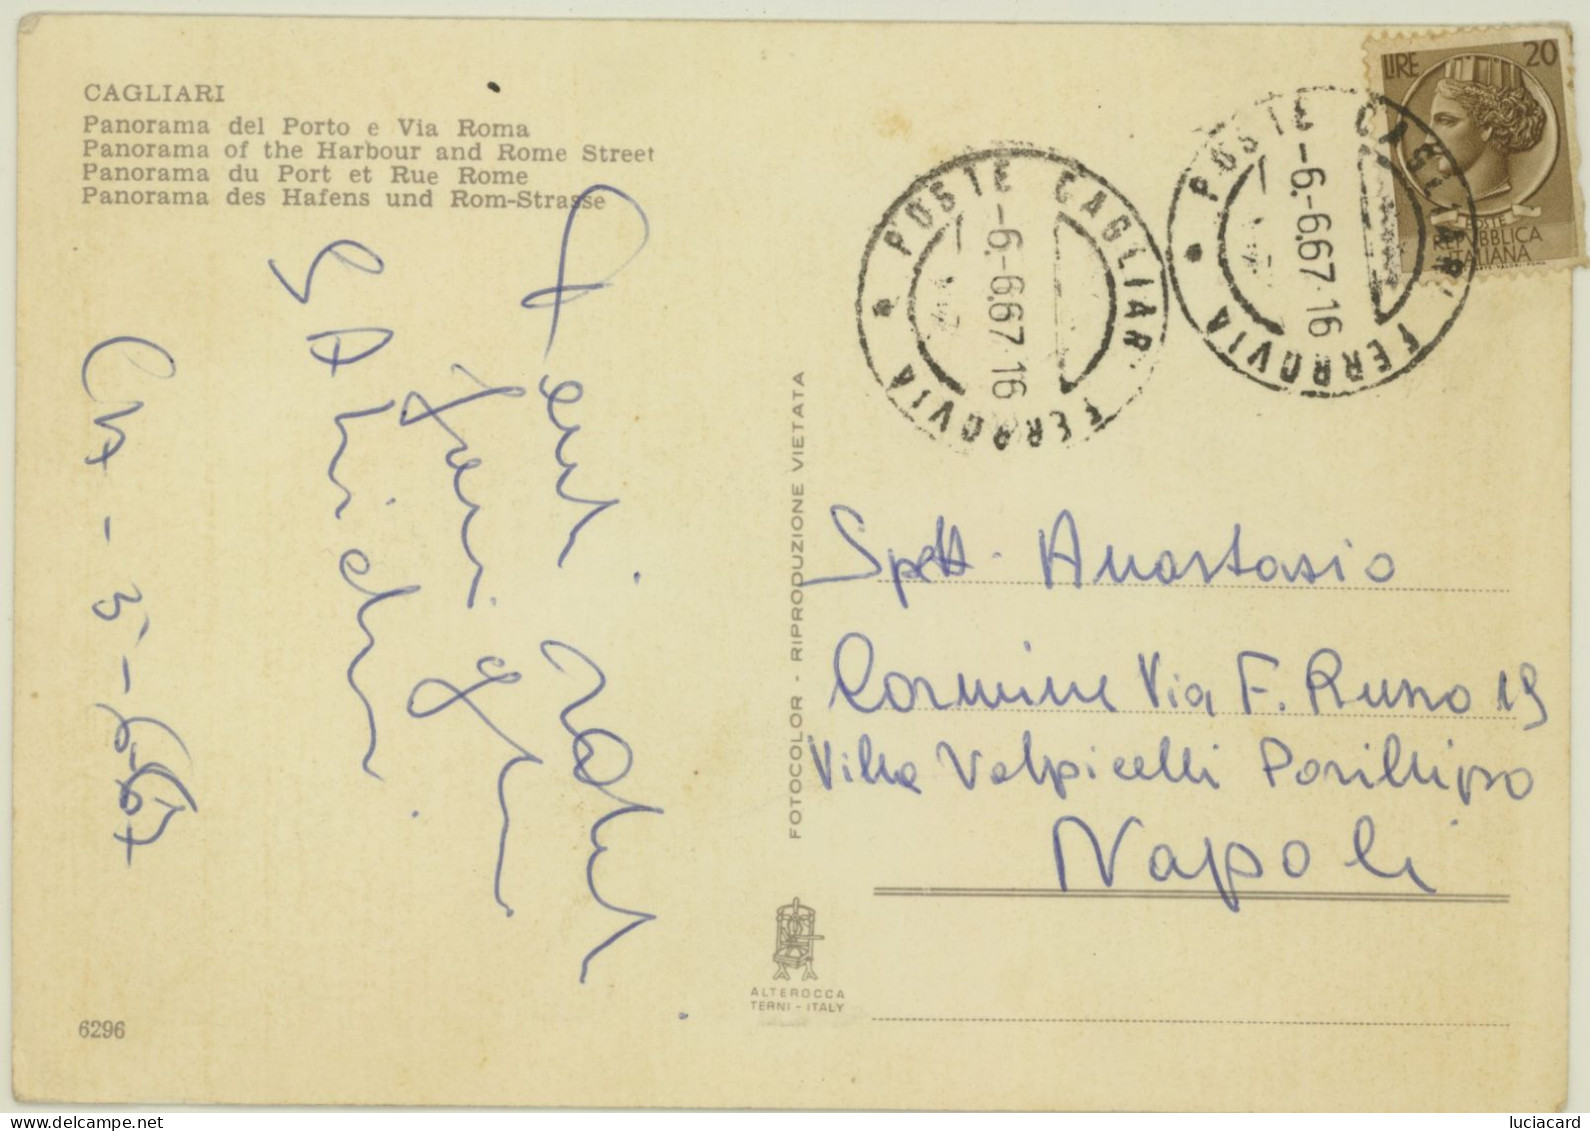 CAGLIARI
Panorama del Porto e Via Roma
Panorama of the Harbour and Rome Street
Panorama du Port et Rue Rome
Panorama des Hafens und Rom-Strasse
LIRE 20
POSTE
REPVBBLICA
ITALIANA
POSTE CAGLIARI FERROVIA
-6.-6.67.16
POSTE CAGLIARI FERROVIA
-6.-6.67.16
Saluti
Famiglia
FOTOCOLOR - RIPRODUZIONE VIETATA
Spett. Anastasio
Carmine Via F. Russo 19
Villa Volpicelli Posillipo
Napoli
ALTEROCCA
TERNI - ITALY
6296
luciacard